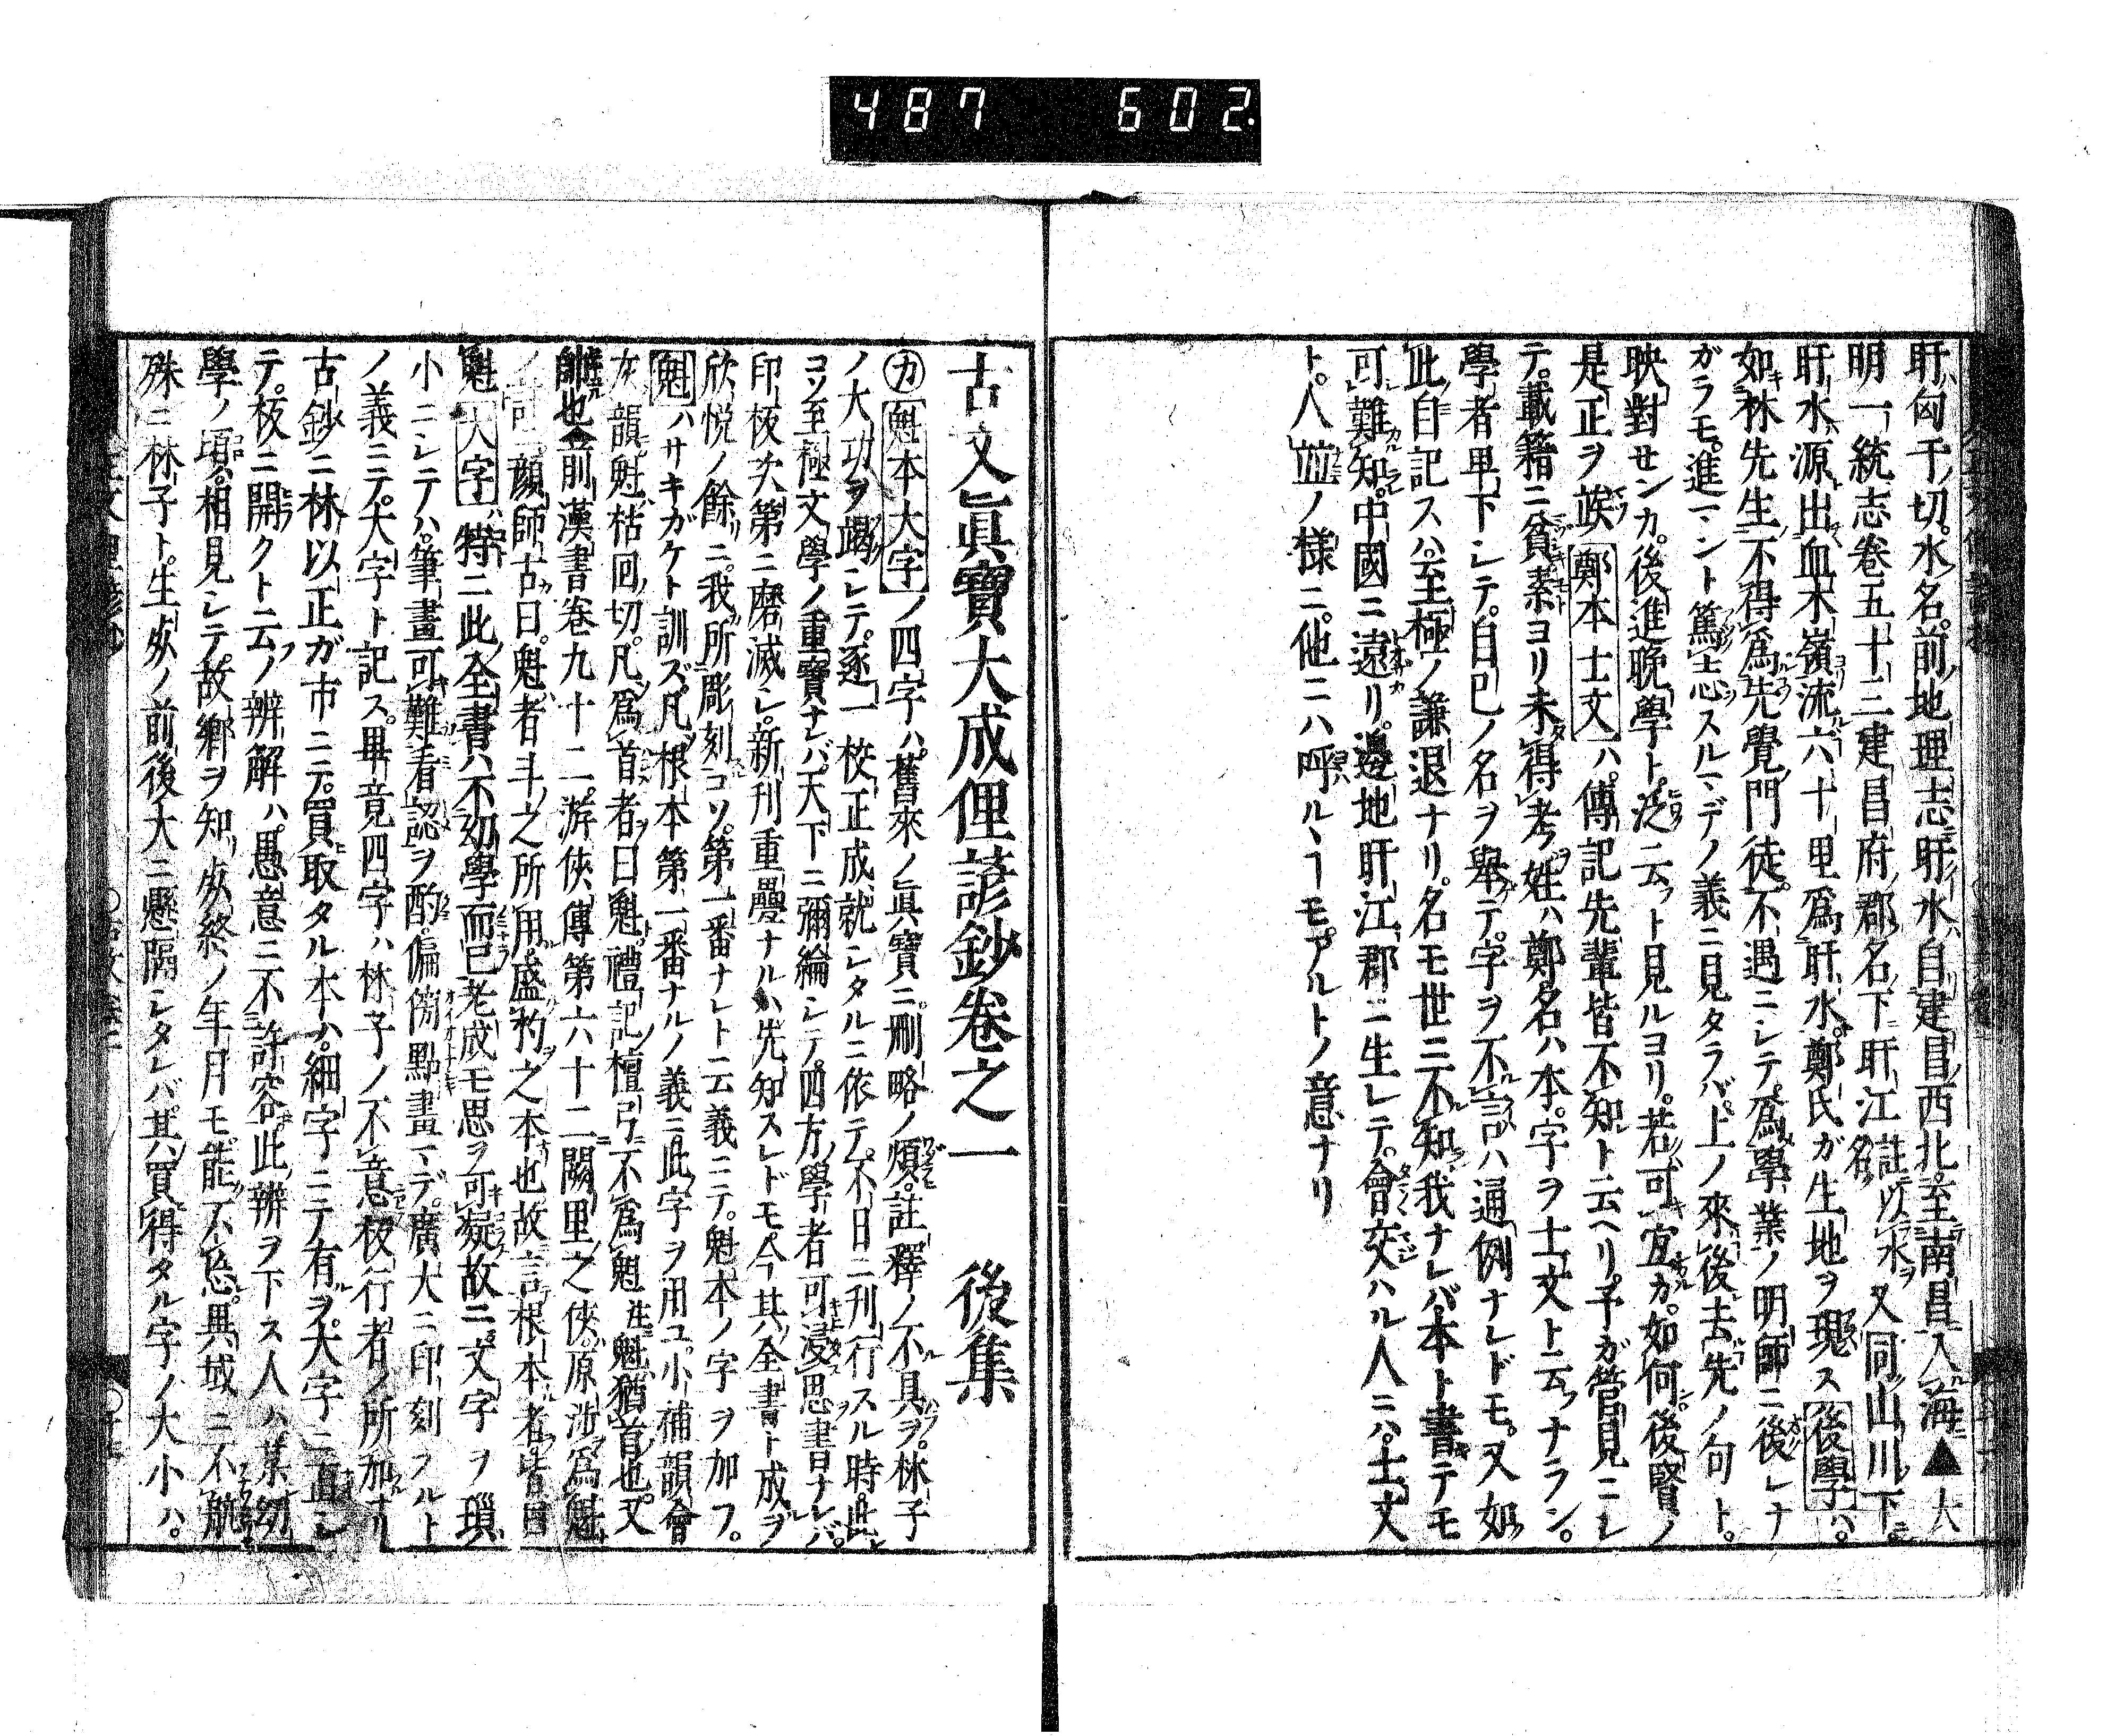 487 602.
盱匈于切水名前地理志盱水自建昌西北至南昌入海▲大
明一統志卷五十三建昌府郡名下盱江註以水名又同山川下
盱水源出血木嶺流六十里爲盱水鄭氏ガ生地ヲ現ス後學ハ
如林先生不得爲先覺門徒不遇ニシテ爲學業ノ明師ニ後レナ
ガラモ進マント篤志スルマデノ義ニ見タラバ上ノ來後去先ノ句ト
映對センカ後進晩學ト泛云フト見ルヨリ若可宜カ如何後賢ノ
是正ヲ竢鄭本士文ハ傳記先輩皆不知ト云ヘリ予ガ管見ニシ
テ載籍ニ貧素ヨリ未得考姓ハ鄭名ハ本字ヲ士文ト云フナラン
學者卑下シテ自己ノ名ヲ舉テ字ヲ不言ハ通例ナレドモ又如
此自記スハ至極ノ謙退ナリ名モ世ニ不知我ナレバ本ト書テモ
可難知中國ニ遠リ邊地盱江郡ニ生レテ會交ハル人ニハ士文
ト人並ノ樣ニ他ニハ呼ルヽ丁モアルトノ意ナリ
古文眞寶大成俚諺鈔卷之一 後集
カ魁本大字ノ四字ハ舊來ノ眞寶ニ刪略ノ煩註釋ノ不具ヲ林子
ノ大功ヲ竭シテ逐一校正成就シタルニ依テ不日ニ刊行スル時此レ
コソ至極文學ノ重寶ナレバ天下ニ彌綸シテ四方學者可浸思書ナレバ
印板次第ニ磨滅シ新刊重疊ナルハ先知スレドモ今其全書ト成ヲ
欣悅ノ餘ニ我所彫刻コソ第一番ナレト云義ニテ魁本ノ字ヲ加フ
魁ハサキガケト訓ズ凡根本第一番ナルノ義ニ此字ヲ用ユ小補韻會
灰韻魁枯回切凡爲首者曰魁禮記檀弓不爲魁註魁猶首也又
帥也前漢書卷九十二游俠傳第六十二閭里之俠原涉爲魁
顏師古曰魁者斗之所用盛杓之本也故言根本者皆曰
魁大字特ニ此全書ハ不幼學而已老成モ思ヲ可凝故ニ文字ヲ瑣
小ニシテハ筆畫可難看認ヲ酌偏傍點畫マデ廣大ニ印刻スルト
ノ義ニテ大字ト記ス畢竟四字ハ林子ノ不意板行者ノ所加ナリ
古鈔ニ林以正ガ市ニテ買取タル本ハ細字ニテ有ヲ大字ニ直シ
テ板ニ開クト云ノ辨解ハ愚意ニ不許容此辨ヲ下ス人ハ某幼
學ノ頃相見シテ故鄉ヲ知處終ノ年月モ能不忘異域ニ不航
殊ニ林子ト生處ノ前後大ニ懸隔シタレバ其買得タル字ノ大小ハ